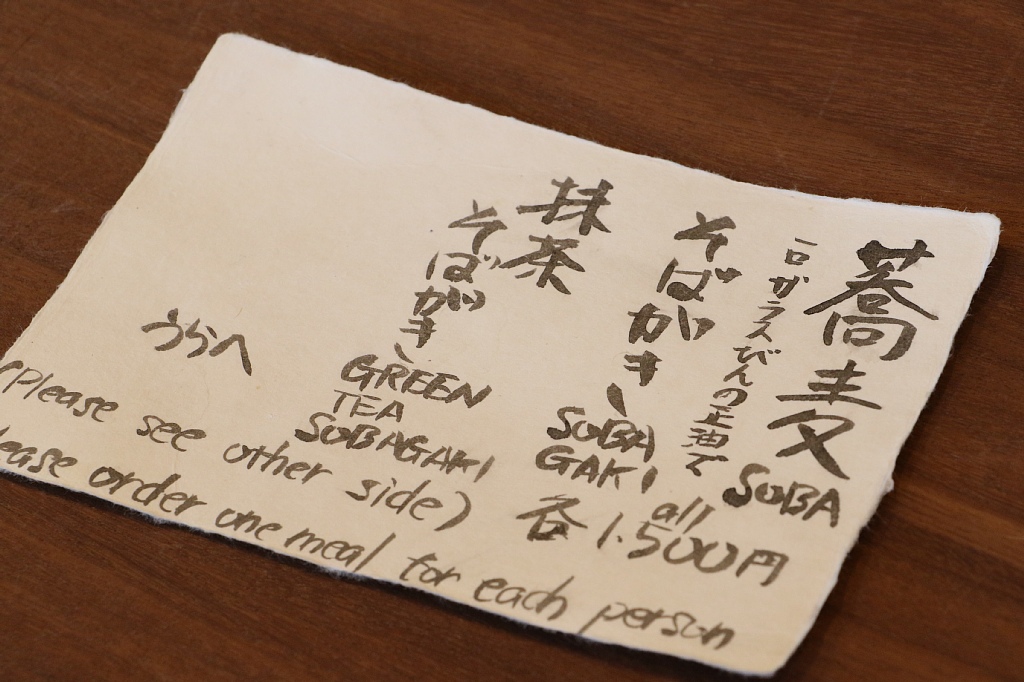 蕎麦
SOBA
一口ガラスびんの正油で
そばがき
SOBA
GAKI
all
各1.500円
抹茶
そばがき
GREEN
TEA
SOBAGAKI
うらへ
(Please see other side)
lease order one meal for each person